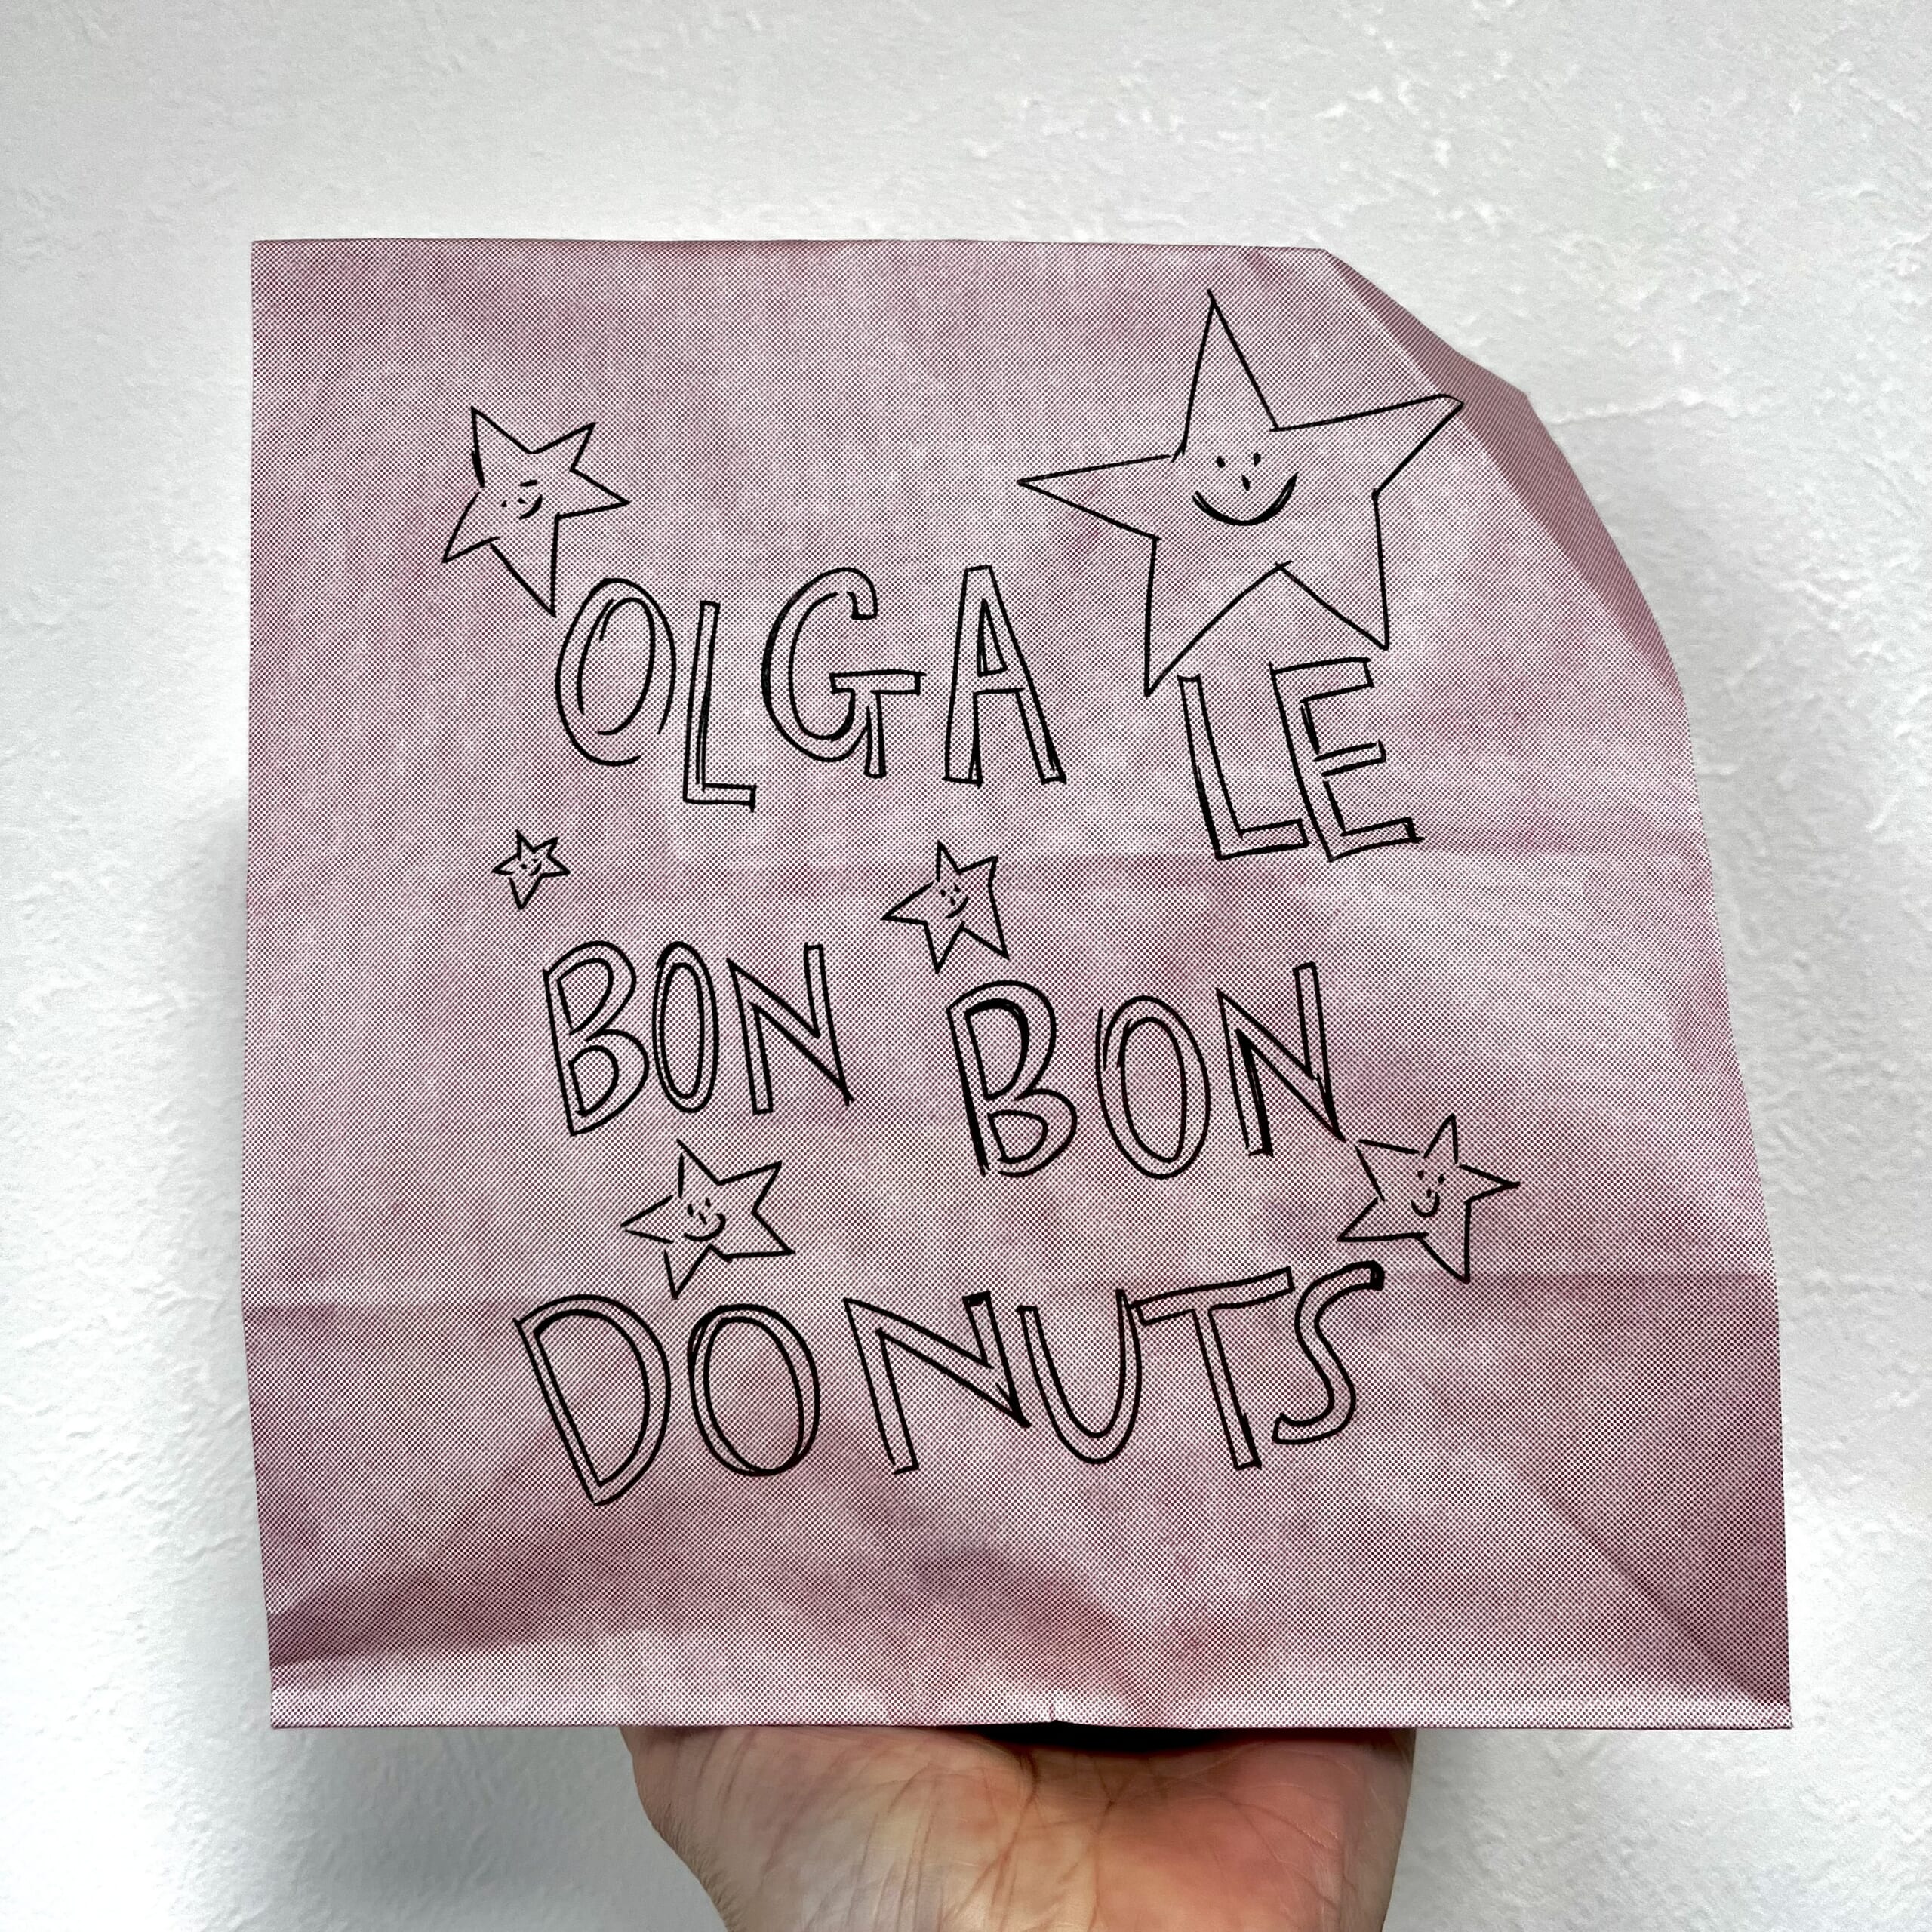 OLGA LE
BON BON
DONUTS